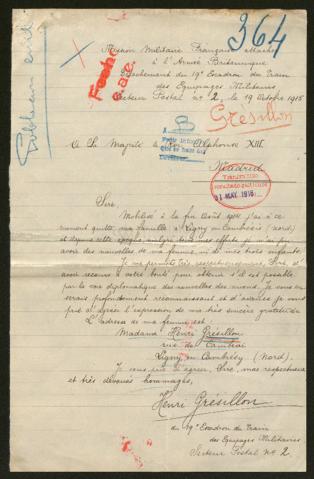 364
Mission Militaire Française attachée
à l'Armée Britannique
Détachement du 19e Escadron du Train
des Equipages Militaires
Secteur Postal no 2, le 19 Octobre 1915
Grésillon
A
B
à Sa Majesté le Roi Alphonse XIII
Madrid
31 MAY. 1916
Sire
Mobilisé à la fin Août 1914 j'ai à ce
moment quitté ma famille à Ligny en Cambrésis (Nord)
et depuis cette époque malgré tous mes efforts je n'ai pu
avoir des nouvelles de ma femme, ni de mes trois enfants.
Je me permets très respectueusement, Sire, d'
avoir recours à votre bonté pour obtenir s'il est possible
par la voie diplomatique des nouvelles des miens. Je vous en
serais profondément reconnaissant et d'avance je vous
prie d'agréer l'expression de ma très sincère gratitude.
L'adresse de ma femme est
Madame Henri Grésillon
rue de Cambrai
Ligny en Cambrésy (Nord).
Je vous prie d'agréer, Sire, mes respectueux
et très dévoués hommages,
Henri Grésillon
du 19e Escadron du Train
des Equipages Militaires
Secteur Postal No 2